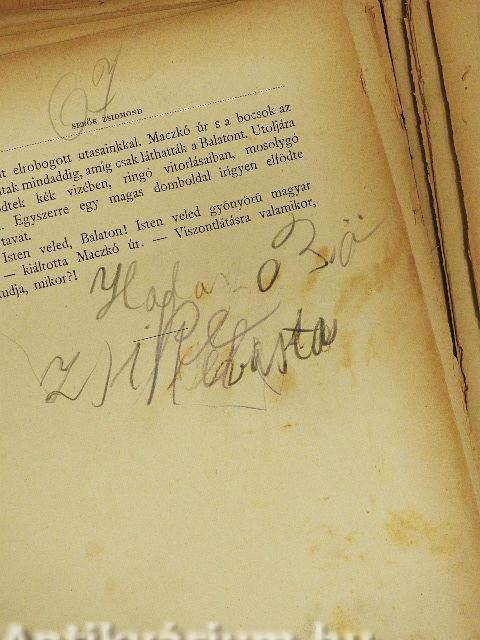 SEBŐK ZSIGMOND
t elrobogott utasainkkal. Maczkó úr s a bocsok az
tak mindaddig, amíg csak láthatták a Balatont. Utoljára
dtek kék vizében, ringó vitorlásaiban, mosolygó
. Egyszerre egy magas domboldal irígyen elfödte
tavat.
Isten veled, Balaton! Isten veled gyönyörű magyar
— kiáltotta Maczkó úr. — Viszontlátásra valamikor,
udja, mikor?!
Antikvárium.hu